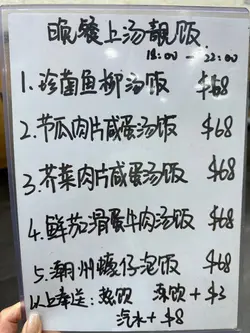 晚餐上汤靓饭
18:00 — 22:00
1.珍菌鱼柳汤饭 $68
2.节瓜肉片咸蛋汤饭 $68
3.芥菜肉片咸蛋汤饭 $68
4.鲜茄滑蛋牛肉汤饭 $68
5.潮州蠔仔泡饭 $68
以上奉送:热饮 冻饮+$3
汽水+$8